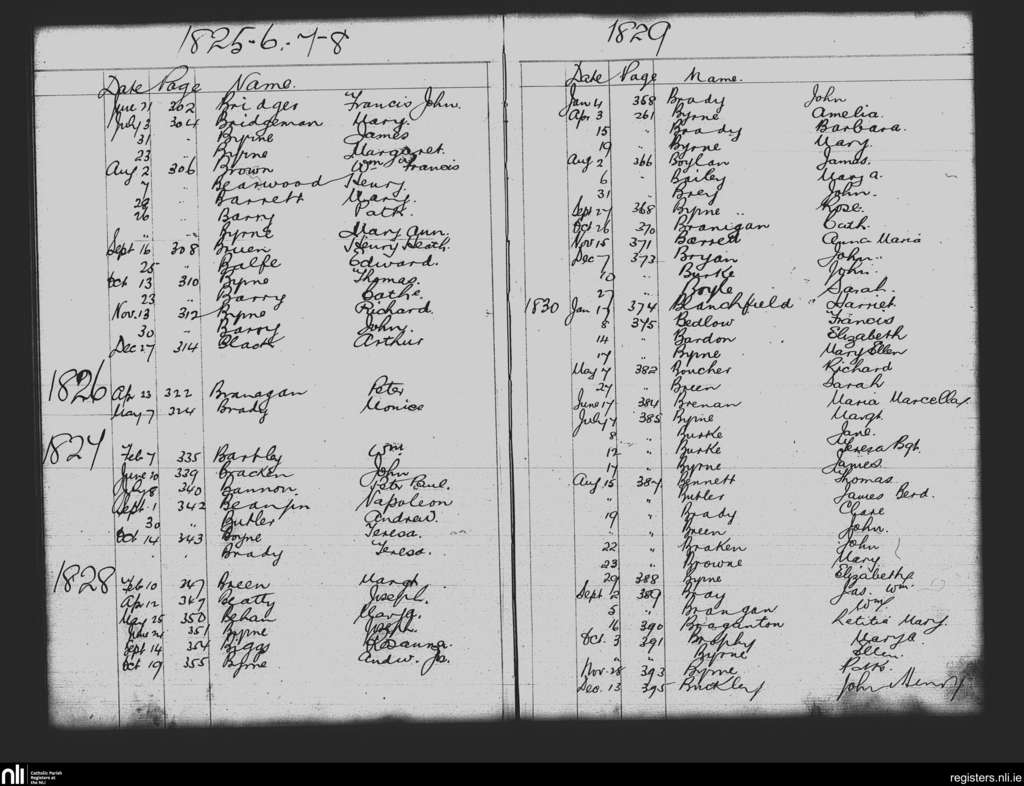 1825-6.-7-8
Date Page Name.
June 21 302 Bridges Francis John.
July 3 304 Bridgeman Mary.
31 " Byrne James
23 " Byrne Margaret
Aug 2 306 Brown Wm Francis
7 " Beanwood Henry
22 " Barrett Mary.
26 " Barry Patk.
" " Byrne Mary Ann.
Sept 16 308 Bruen Henry Heath.
25 " Balfe Edward.
Oct 13 310 Byrne Thomas.
23 " Barry Cathe
Nov. 13 312 Byrne Richard.
30 " Barry John.
Dec 27 314 Black Arthur
1826
Apr 23 322 Branagan Peter
May 7 324 Brady Monica
1827
Feb 7 335 Bartley Wm
June 20 339 Bracken John
July 8 340 Bannon Peter Paul.
Sept. 1 342 Napoleon
30 " Butler Andrew.
Oct 14 343 Boyne Teresa.
" " Brady Teresa.
1828
Feb 10 347 Breen Margt
Apr 12 347 Beatty Joseph.
May 25 350 Behan
June 24 351 Byrne Joseph.
Sept 14 354 Biggs
Oct 19 355 Byrne Andw. Js.
1829
Date Page Name.
Jan 4 358 Brady John
Apr 3 261 Byrne Amelia.
15 " Brady Barbara.
19 " Byrne Mary.
Aug 2 366 Boylan James.
6 " Bailey Mary a.
31 " Brey John.
Sept 27 368 Byrne " Rose.
Oct 26 370 Branigan Cath.
Nov 15 371 Barrett Anna Maria
Dec 7 373 Bryan John.
10 " Burke John.
27 " Boyle Sarah.
1830 Jan 1 374 Blanchfield Harriet
8 375 Bedlow Francis
14 " Bardon Elizabeth
17 " Byrne Mary Ellen
May 7 382 Boucher Richard
27 " Breen Sarah
June 17 384 Brenan Maria Marcella
July 7 385 Byrne Margt
8 " Burke Jane.
12 " Burke Teresa Bgt.
17 " Byrne James.
Aug 15 387 Bennett Thomas.
" " Butler James Berd.
19 " Brady Clare
" " Breen John.
22 " Braken John
23 " Browne Mary
29 388 Byrne Elizabeth
Sept 2 389 Bray Jas. Wm.
5 " Brangan Wm.
16 390 Braganton Letitia Mary.
Oct. 3 391 Brophy Mary a
" " Byrne Ellen.
Nov. 28 393 Byrne Patk.
Dec. 13 395 Buckley John Henry
nli
Catholic Parish
Registers at
the NLI
registers.nli.ie